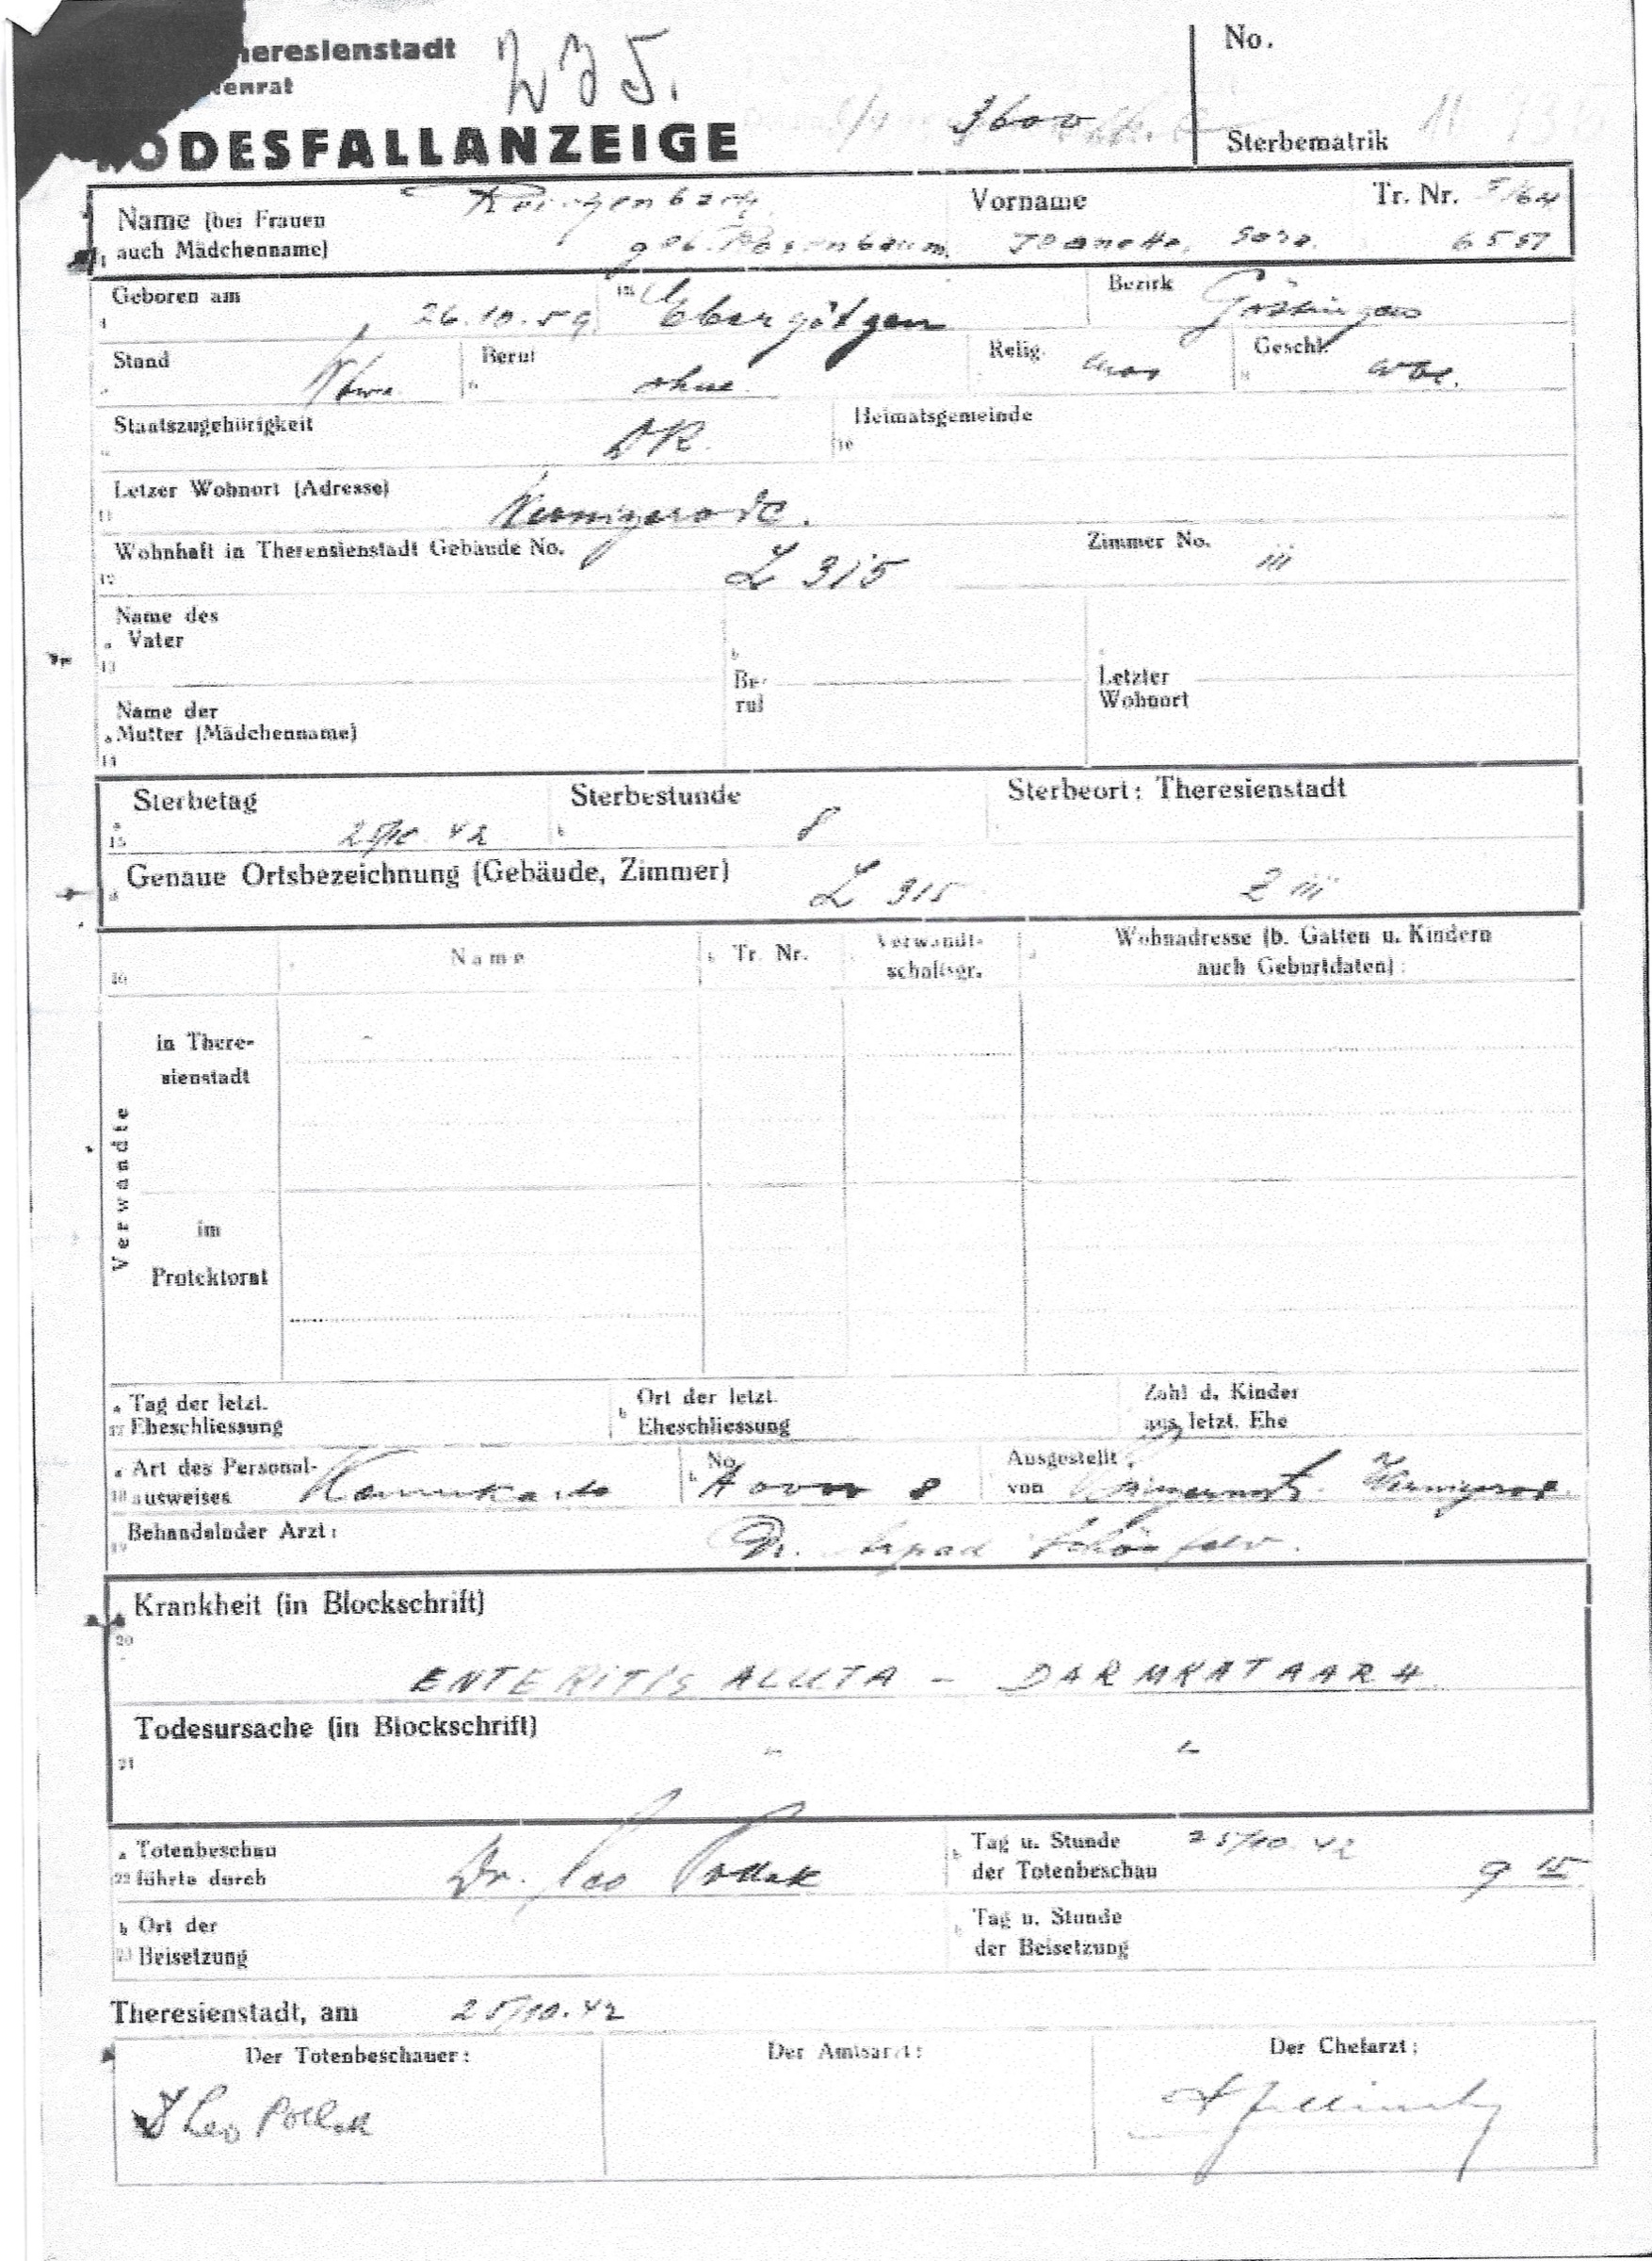 Theresienstadt
enrat
235.
No.
3600
Sterbematrik
ODESFALLANZEIGE
Name (bei Frauen
auch Mädchenname)
geb. Rosenbaum,
Vorname
Jeanette, Sara.
Tr. Nr.
Geboren am
26.10.59
in Ebergötzen
Bezirk Göttingen
Stand
Wwe.
Beruf
ohne.
Relig. mos
Geschl. wbl.
Staatszugehörigkeit
DR.
Heimatsgemeinde
10
Letzer Wohnort (Adresse)
11
Wernigerode.
Wohnhaft in Theresienstadt Gebäude No.
12
L 315
Zimmer No. iii
Name des
a Vater
13
b
Be-
ruf
Letzter
Wohnort
Name der
a Mutter (Mädchenname)
14
Sterbetag
15
25/10. 42
Sterbestunde
8
Sterbeort: Theresienstadt
Genaue Ortsbezeichnung (Gebäude, Zimmer)
L 315
Z iii
16
Name
Tr. Nr.
Verwandt-
schaftsgr.
Wohnadresse (b. Gatten u. Kindern
auch Geburtdaten):
Verwandte
in There-
sienstadt
im
Protektorat
a Tag der letzt.
17 Eheschliessung
b Ort der letzt.
Eheschliessung
Zahl d. Kinder
aus letzt. Ehe
a Art des Personal-
18 ausweises
Kennkarte
b No.
A 0000 8
Ausgestellt
von
Wernigerode.
19 Behandelnder Arzt:
Dr. Arpad Schönfeld.
Krankheit (in Blockschrift)
20
ENTERITIS ACUTA – DARMKATAARH
Todesursache (in Blockschrift)
21
" "
a Totenbeschau
22 führte durch
Dr. Leo Pollak
b Tag u. Stunde
der Totenbeschau
25/10. 42
9 15
b Ort der
23 Beisetzung
Tag u. Stunde
der Beisetzung
Theresienstadt, am 25/10.42
Der Totenbeschauer:
Der Amtsarzt:
Der Chefarzt:
Leo Pollak